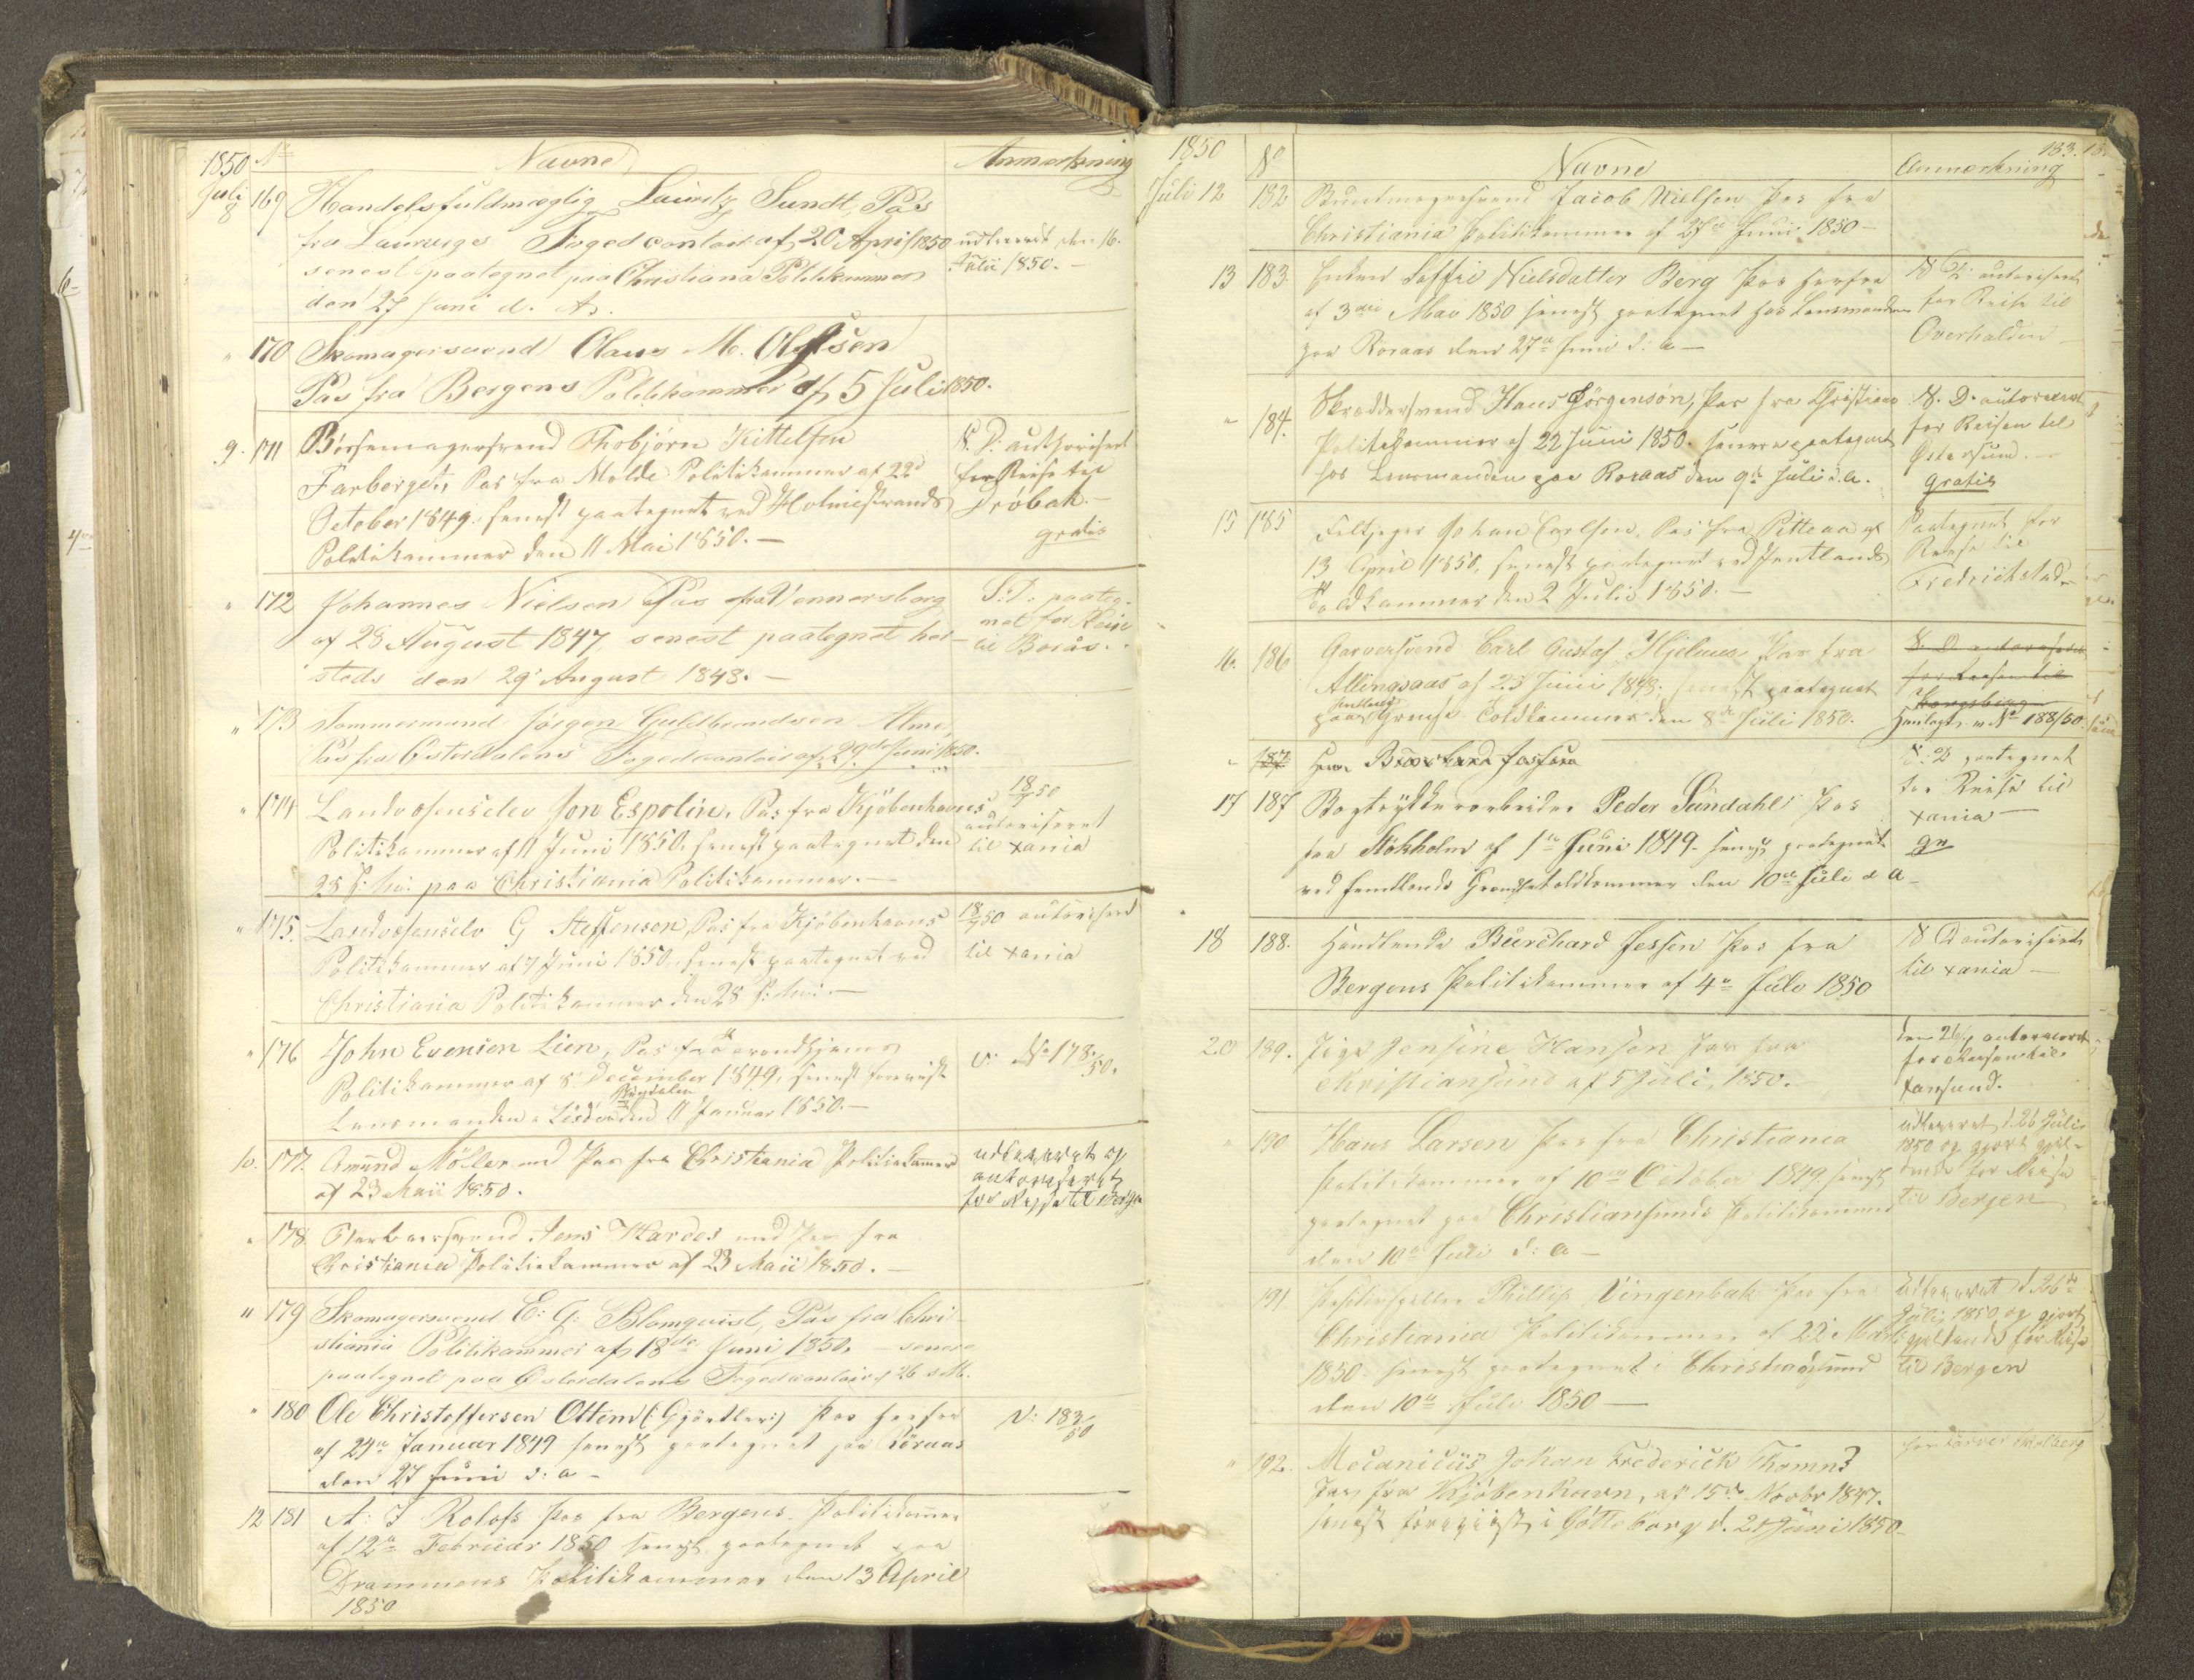 1850 No Navne Anmærkning
Juli
8 169 Handelsfuldmægtig Lauritz Sundt, Pas
fra Laurvigs Fogedcontoir af 20 April 1850 udleveret den 16.
senest paategnet paa Christiania Politikammer Julii 1850. -
den 27 Juni d. A.
" 170 Skomagersvend Olaus M. Olsen
Pas fra Bergens Politikammer af 5 Juli 1850.
9. 171 Børsemagersvend Thobjörn Kittelsen S. D. authoriseret
Farberget, Pas fra Molde Politikammer af 22d for Reise til
October 1849. senest paategnet ved Holmestrands Dröbak. -
Politikammer den 11 Mai 1850. - gratis
" 172 Johannes Nielsen Pas fra Vennersborg S. D. paateg-
af 28 August 1847, senest paategnet her- net for Reise
steds den 29 August 1848. - til Borås.
" 173 Tommermand Jörgen Guldbrandsen
Pas fra Österdalens Fogedcontoir af 29de Juni 1850.
" 174 Landvæsenselev Jon Espolin, Pas fra Kjöbenhavns 18/7 50
Politikammer af 11 Juni 1850, senest paategnet den autoriseret
28 s. M. paa Christiania Politikammer. - til Xania
" 175. Landvæsenselv G Steffensen, Pas fra Kjöbenhavns 18/7 50 autoriseret
Politikammer af 7 Juni 1850, senest paategnet ved til Xania
Christiania Politikammer den 28 s. M. -
" 176 John Evensen Lien, Pas fra Trondhjems v: No 178/50.
Politikammer af 8 December 1849, senest foreviist
Lensmanden i den 11 Januar 1850. -
10. 177. Amund Möller med Pas fra Christiania Politiekammer udleveret og
af 23 Maii 1850. autoriseret
for Reise til Bergen
" 178 Garversvend Jens Hardes med Pas fra
Christiania Politiekammer af 23 Maii 1850. -
11 179 Skomagersvend E: G: Blomquist, Pas fra Chri-
stiania Politikammer af 18de Juni 1850. - senere
paategnet paa Österdalens Fogedcontoir d 26 s M.
" 180 Ole Christoffersen Ottem (: Gjörtler :) Pas herfra v: 183/50
af 24de Januar 1849 senest paategnet paa Röraas
den 27 Juni d: a -
12 181 A: J Rolofs Pas fra Bergens Politikammer
af 12te Februar 1850 senest paategnet paa
Drammens Politikammer den 13 April
1850
1850 No Navne Anmærkning 183.
Juli 12 182 Buntmagersvend Jacob Nielsen Pas fra
Christiania Politikammer af 27de Juni 1850 -
13 183. Enken Nielsdatter Berg Pas herfra S D: autoriseret
af 3die Mai 1850 senest paategnet hos Lensmanden for Reise til
paa Röraas den 27de Juni d: a - Overhalden
" 184. Skræddersvend Hans Jörgensön, Pas fra Christiania S. D. autoriseret
Politikammer af 22 Juni 1850. senere paategnet for Reisen til
hos Lensmanden paa Roraas den 9de Juli d.a. Östersund. -
gratis
15 185 Feltjæger Johan Carlsen, Pas fra Pitteaa af Paategnet for
13 April 1850, senest paategnet ved Jemtlands Reise til
Toldkammer den 2 Julii 1850. - Fredrikstad
16. 186 Garversvend Carl Gustaf Hjelm Pas fra S. D autoriseret
Allingsaas af 23 Juni 1848. senest paategnet for Reisen til
paa Grændse Toldkammer den 8de Juli 1850. Kongsberg
Henlagt v No 188/50.
" 187 Burchard Jessen S: D paategnet
17 187 Bogtrykkerarbeider Peder Sundahl Pas for Reise til
fra Stokholm af 1ste Juni 1849. senest paategnet Xania -
ved Jemtlands Grændsetoldkammer den 10de Juli d A - gr
18 188. Handlende Burchard Jessen Pas fra S D autoriseret
Bergens Politikammer af 4de Julv 1850 til Xania -
20 189. Pige Jensine Hansen Pas fra den 26/7 autoriseret
Christiansund af 5 Juli, 1850. for Reisen til
Xansund.
" 190 Hans Larsen Pas fra Christiania udleveret d. 26 Juli
Politikammer af 10de October 1849. senest 1850 og gjort gjel-
paategnet paa Christiansunds Politikammer dende for Reise
den 10de Juli d: a - til Bergen
191. Phillip Vingenbak Pas fra Udleveret d. 26de
Christiania Politikammer af 22 Marts Juli 1850 og gjort
1850. senest paategnet i Christiansund gjeldende for Reise
den 10de Juli 1850 - til Bergen
" 192. Mecanicus Johan Frederick Thomn
Pas fra Kjöbenhavn, af 15de Novbr 1847.
senest foreviist i Götteborg d. 21 Juni 1850